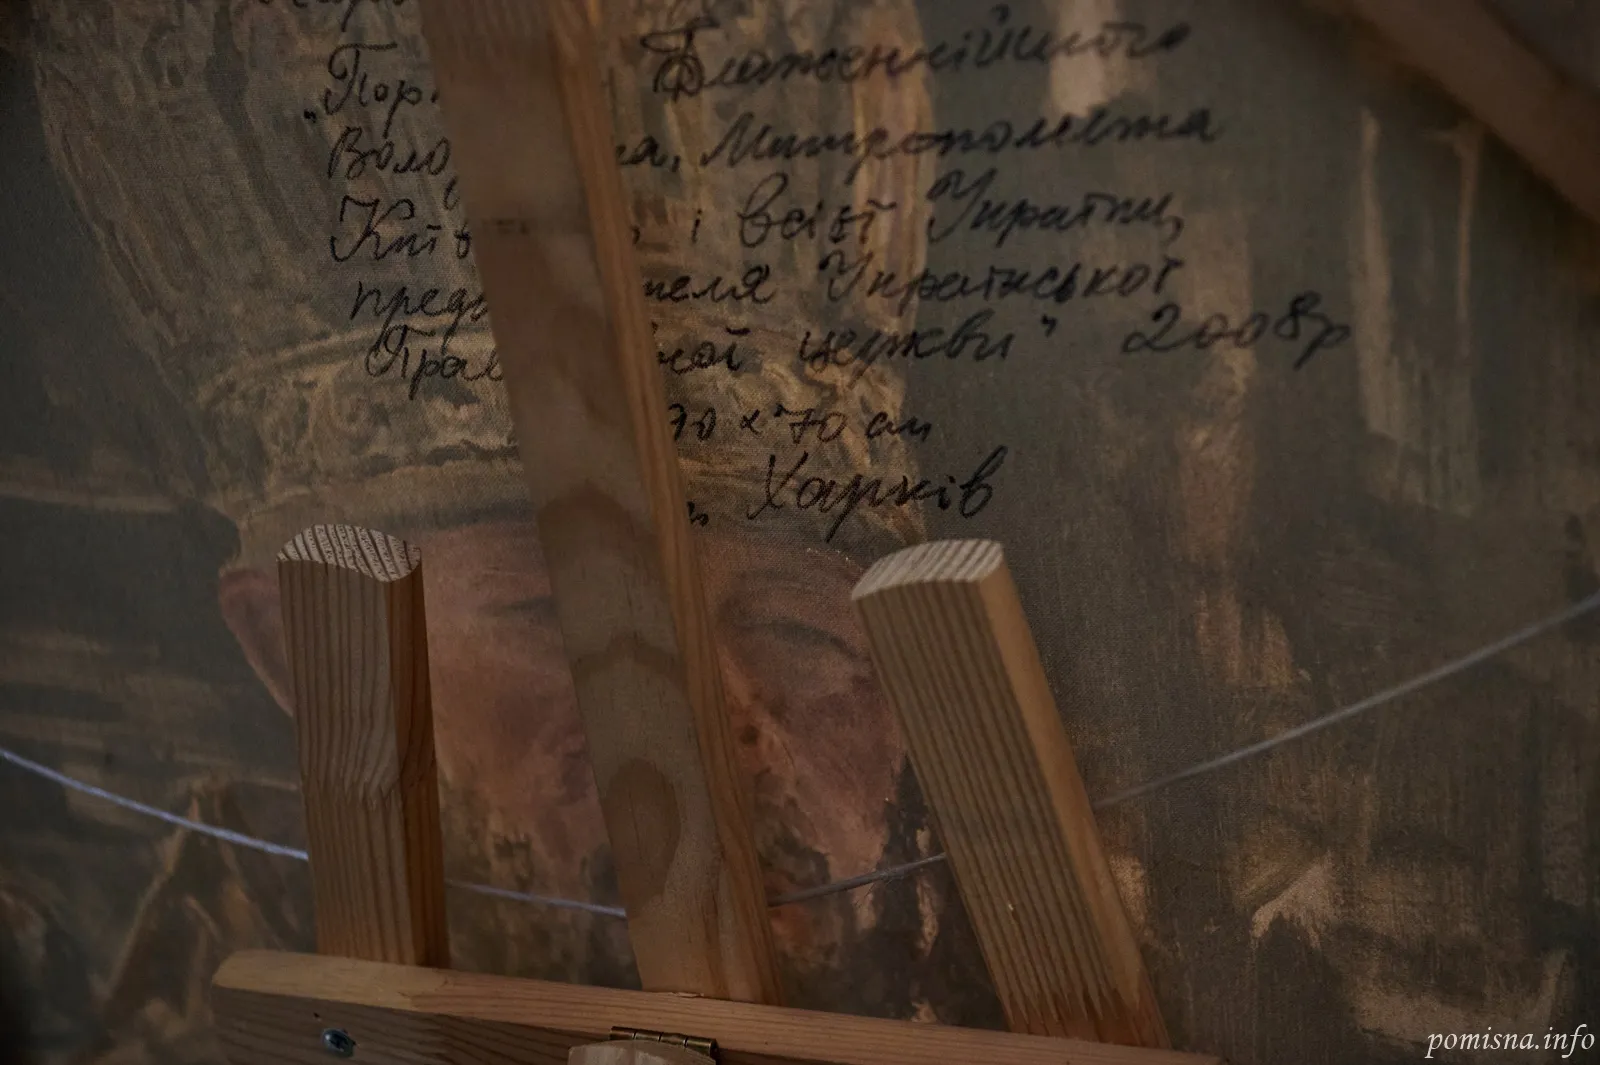 „Пор Блаженнійшого
Воло ра, Митрополита
Київ і всієї України,
предс теля Української
Прав ної церкви" 2008р
70 х 70 см
Харків
pomisna.info